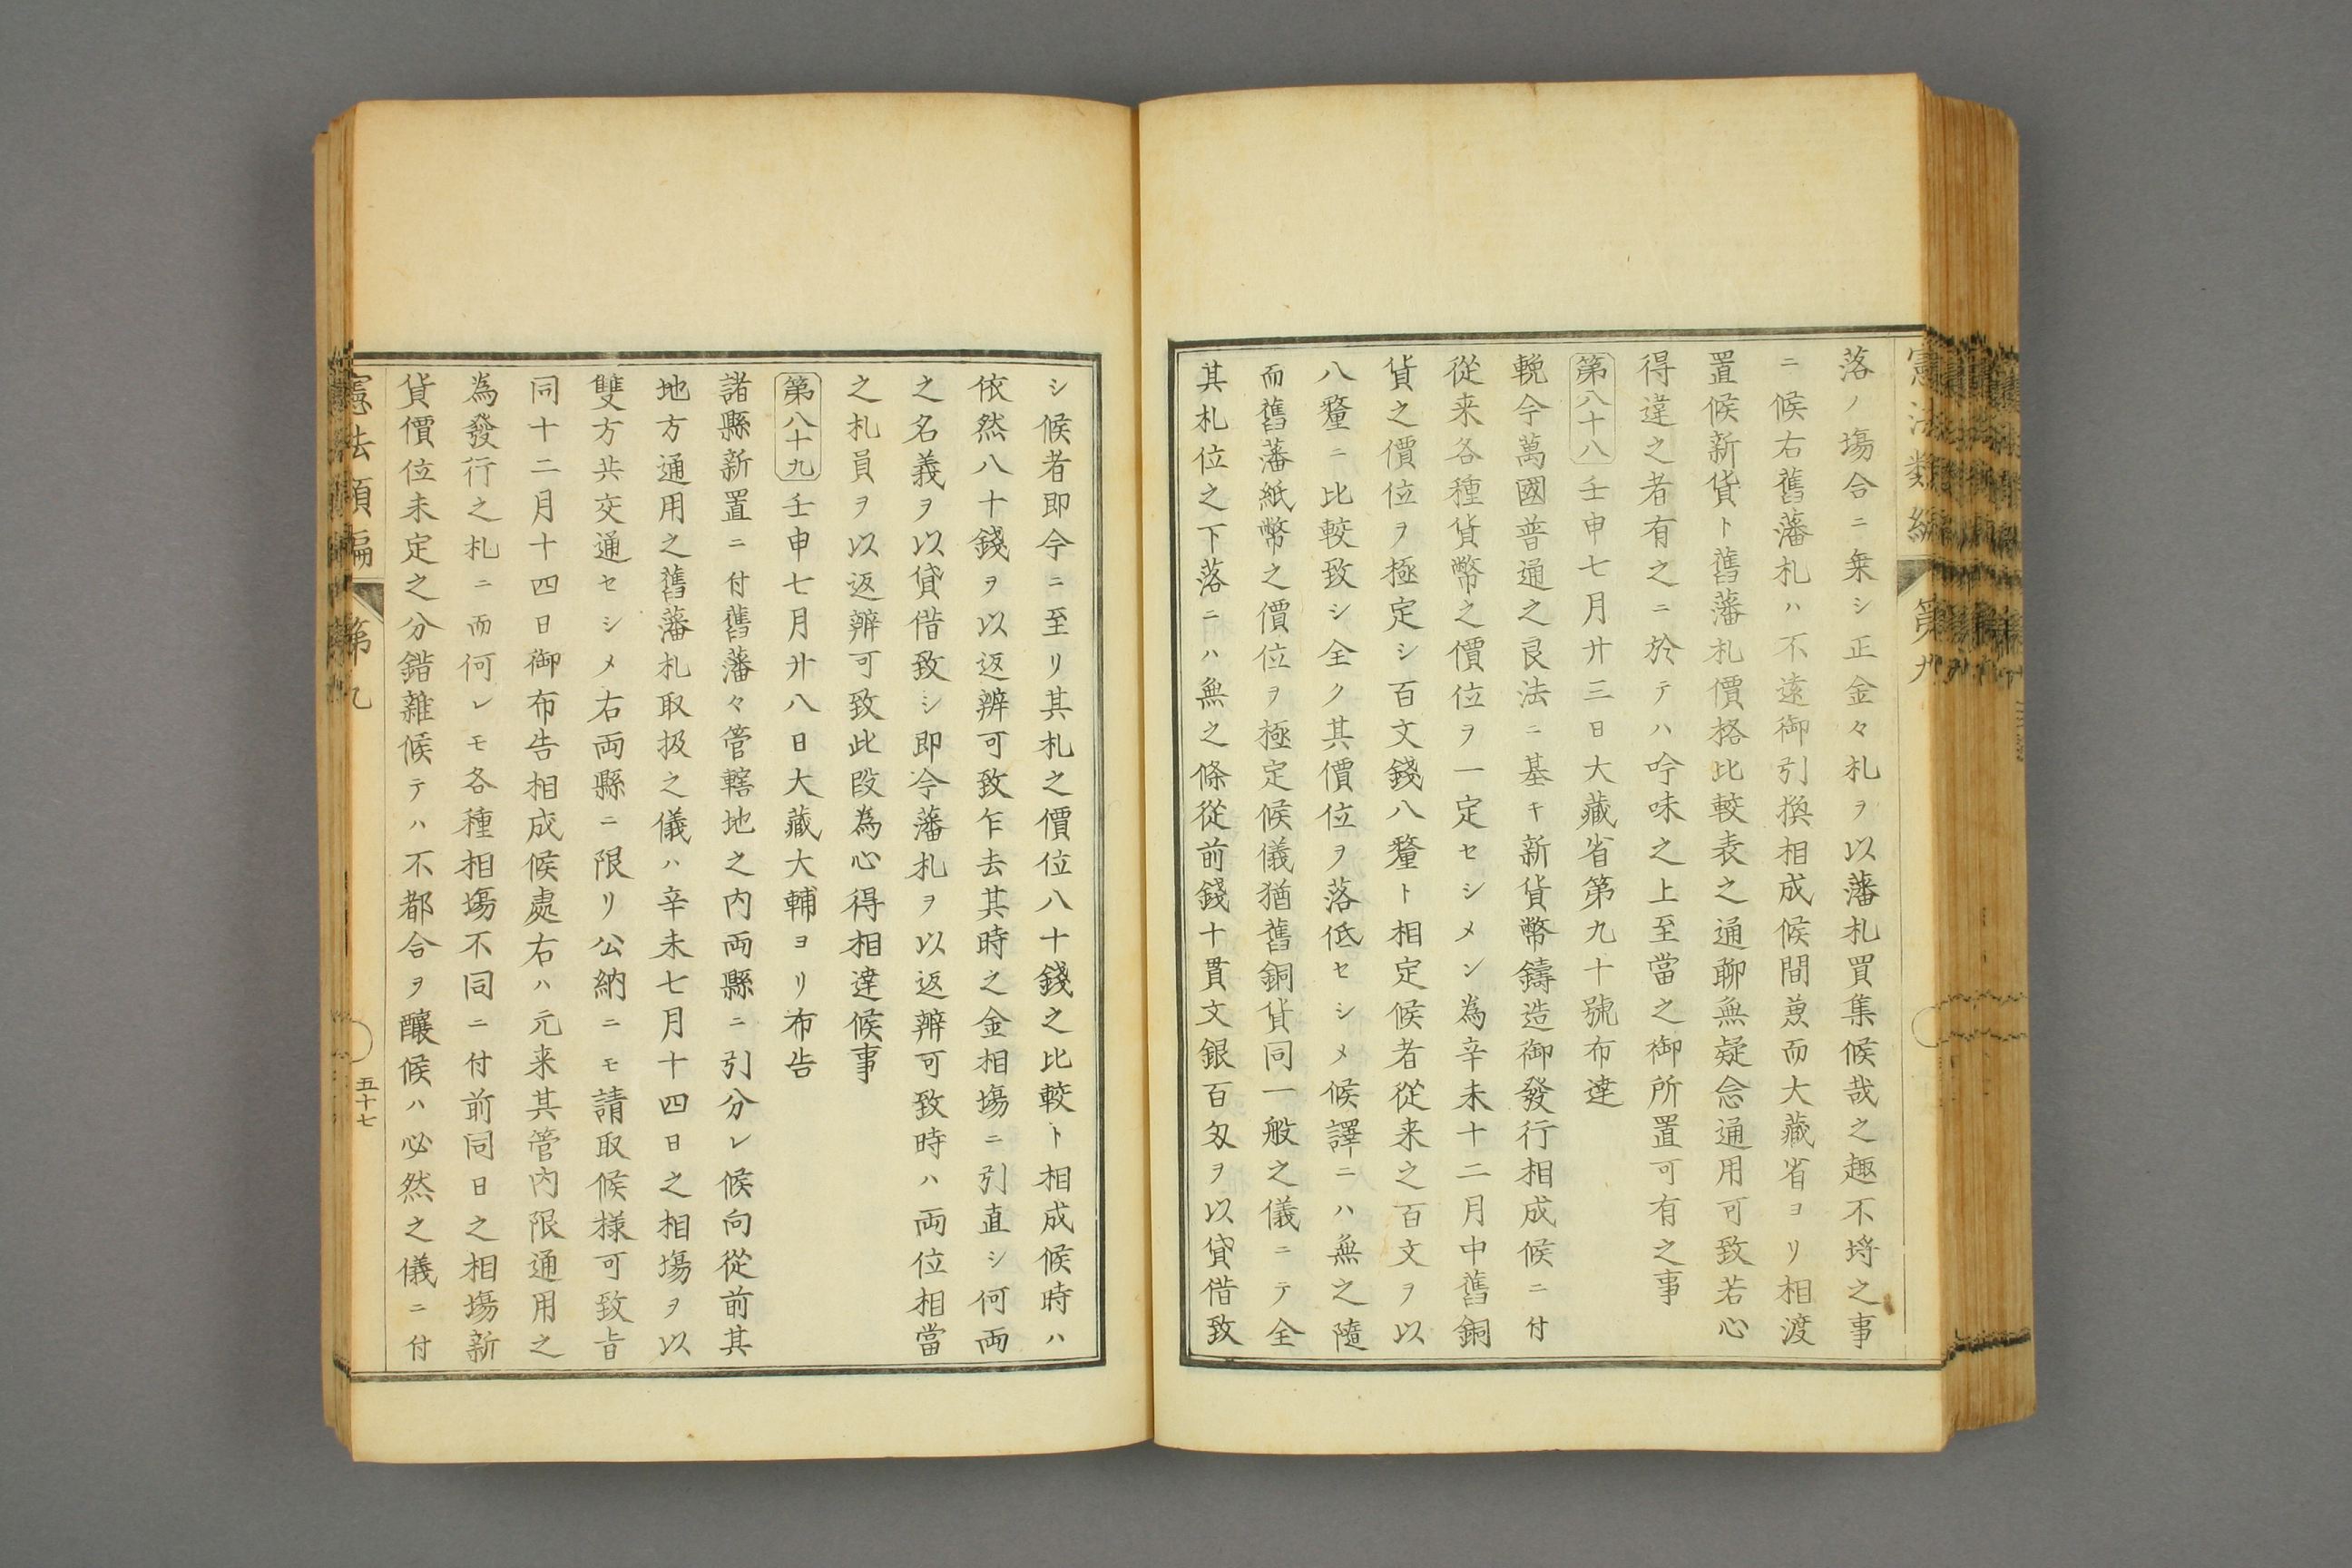 憲法類編 第九
落ノ塲合ニ乗シ正金々札ヲ以藩札買集候哉之趣不埓之事
ニ候右舊藩札ハ不遠御引換相成候間兼而大藏省ヨリ相渡
置候新貨ト舊藩札價格比較表之通聊無疑念通用可致若心
得違之者有之ニ於テハ吟味之上至當之御所置可有之事
第八十八 壬申七月廿三日大藏省第九十號布達
輓今萬國普通之良法ニ基キ新貨幣鑄造御發行相成候ニ付
從来各種貨幣之價位ヲ一定セシメン為辛未十二月中舊銅
貨之價位ヲ極定シ百文錢八釐ト相定候者從来之百文ヲ以
八釐ニ比較致シ全ク其價位ヲ落低セシメ候譯ニハ無之隨
而舊藩紙幣之價位ヲ極定候儀猶舊銅貨同一般之儀ニテ全
其札位之下落ニハ無之條從前錢十貫文銀百匁ヲ以貸借致
シ候者即今ニ至リ其札之價位八十錢之比較ト相成候時ハ
依然八十錢ヲ以返辨可致乍去其時之金相塲ニ引直シ何両
之名義ヲ以貸借致シ即今藩札ヲ以返辨可致時ハ両位相當
之札員ヲ以返辨可致此段為心得相達候事
第八十九 壬申七月廿八日大藏大輔ヨリ布告
諸縣新置ニ付舊藩々管轄地之内両縣ニ引分レ候向從前其
地方通用之舊藩札取扱之儀ハ辛未七月十四日之相塲ヲ以
雙方共交通セシメ右両縣ニ限リ公納ニモ請取候様可致旨
同十二月十四日御布告相成候處右ハ元来其管内限通用之
為發行之札ニ而何レモ各種相塲不同ニ付前同日之相塲新
貨價位未定之分錯雜候テハ不都合ヲ釀候ハ必然之儀ニ付
憲法類編 第九 五十七